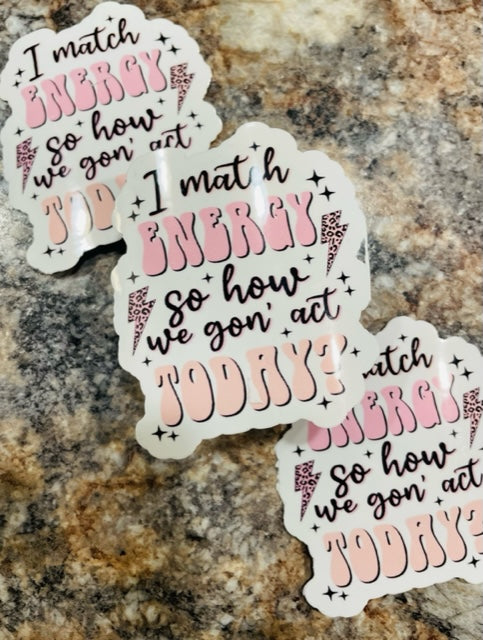 I match
ENERGY
so how
we gon' act
TOD
I match
ENERGY
so how
we gon' act
TODAY?
atch
NERGY
so how
we gon' act
TODAY?